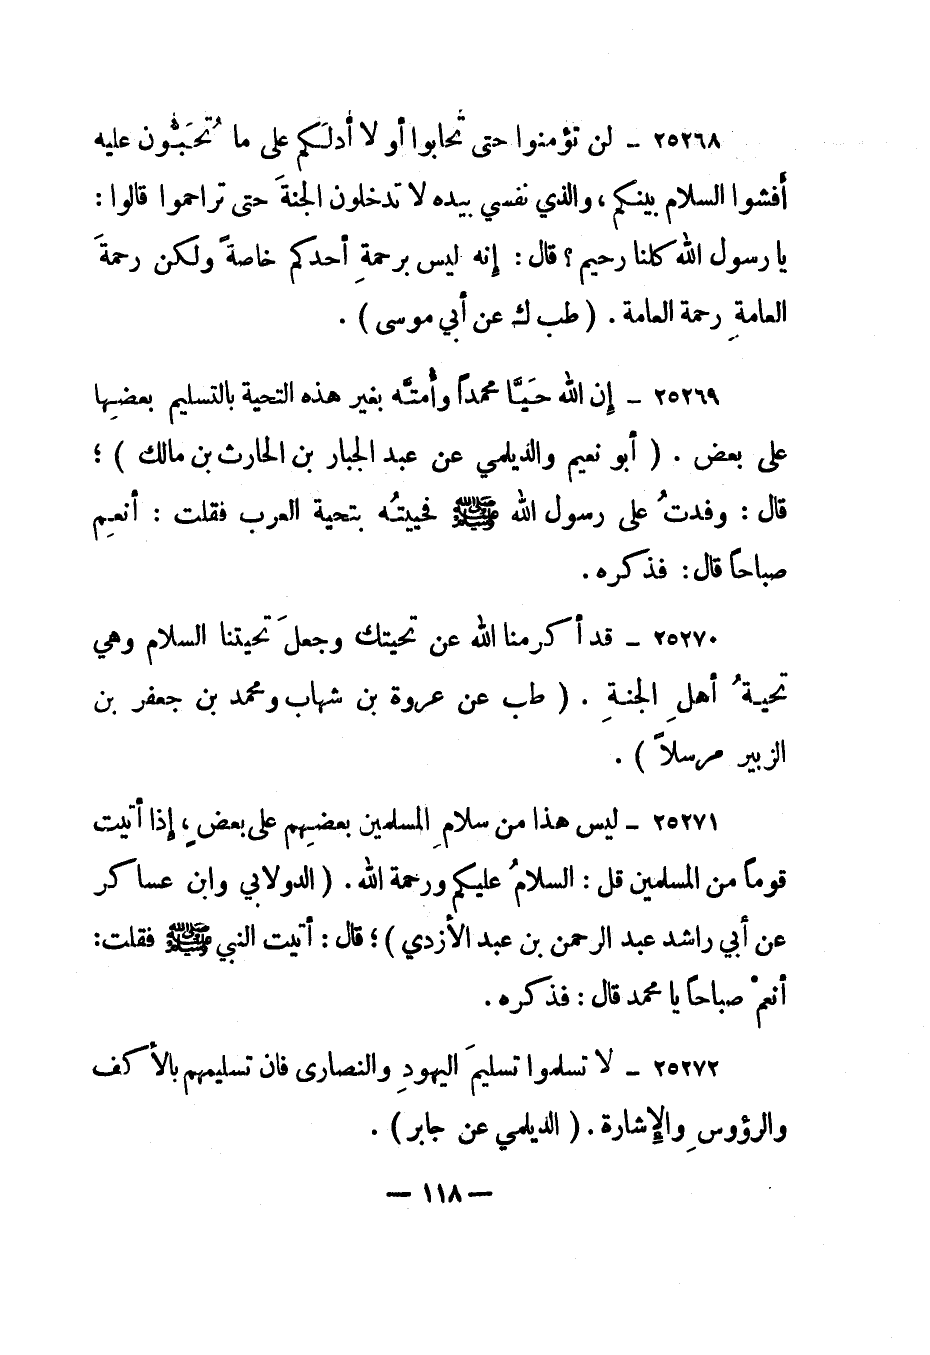 ٢٥٢٦٨ - لن تؤمنوا حتى تحابوا أو لا أدلكم على ما تُحَبُّون عليه
أفشوا السلام بينكم ، والذي نفسي بيده لا تدخلون الجنةَ حتى تراحموا قالوا :
يا رسول الله كلنا رحيم ؟ قال : إنه ليس برحمةِ أحدكم خاصةً ولكن رحمةَ
العامةِ رحمة العامة . ( طب ك عن أبي موسى ) .
٢٥٢٦٩ - إن الله حَيَّا محمداً وأمتَّه بغير هذه التحية بالتسليم بعضِها
على بعض . ( أبو نعيم والديلمي عن عبد الجبار بن الحارث بن مالك ) ؛
قال : وفدتُ على رسول الله ﷺ فحييتُه بتحية العرب فقلت : أنعِم
صباحاً قال : فذكره .
٢٥٢٧٠ - قد أكرمنا الله عن تحيتك وجعلَ تحيتنا السلام وهي
تحيةُ أهلِ الجنةِ . ( طب عن عروة بن شهاب ومحمد بن جعفر بن
الزبير مرسلاً ) .
٢٥٢٧١ - ليس هذا من سلامِ المسلمين بعضِهم على بعضٍ ، إذا أتيت
قوماً من المسلمين قل : السلامُ عليكم ورحمة الله . ( الدولابي وابن عساكر
عن أبي راشد عبد الرحمن بن عبد الأزدي ) ؛ قال : أتيت النبي ﷺ فقلت :
أنعمْ صباحاً يا محمد قال : فذكره .
٢٥٢٧٢ - لا تسلموا تسليمَ اليهودِ والنصارى فان تسليمهم بالأكف
والرؤوسِ والإشارة . ( الديلمي عن جابر ) .
— ١١٨ —